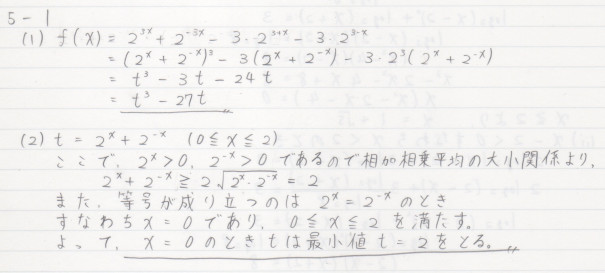 5-1
(1) f(x) = 2^{3x} + 2^{-3x} - 3・2^{3+x} - 3・2^{3-x}
= (2^x + 2^{-x})^3 - 3(2^x + 2^{-x}) - 3・2^3(2^x + 2^{-x})
= t^3 - 3t - 24t
= t^3 - 27t
(2) t = 2^x + 2^{-x} (0 ≦ x ≦ 2)
ここで、2^x > 0, 2^{-x} > 0 であるので相加相乗平均の大小関係より、
2^x + 2^{-x} ≧ 2√(2^x・2^{-x}) = 2
また、等号が成り立つのは 2^x = 2^{-x} のとき
すなわち x = 0 であり、0 ≦ x ≦ 2 を満たす。
よって、x = 0 のとき t は最小値 t = 2 をとる。